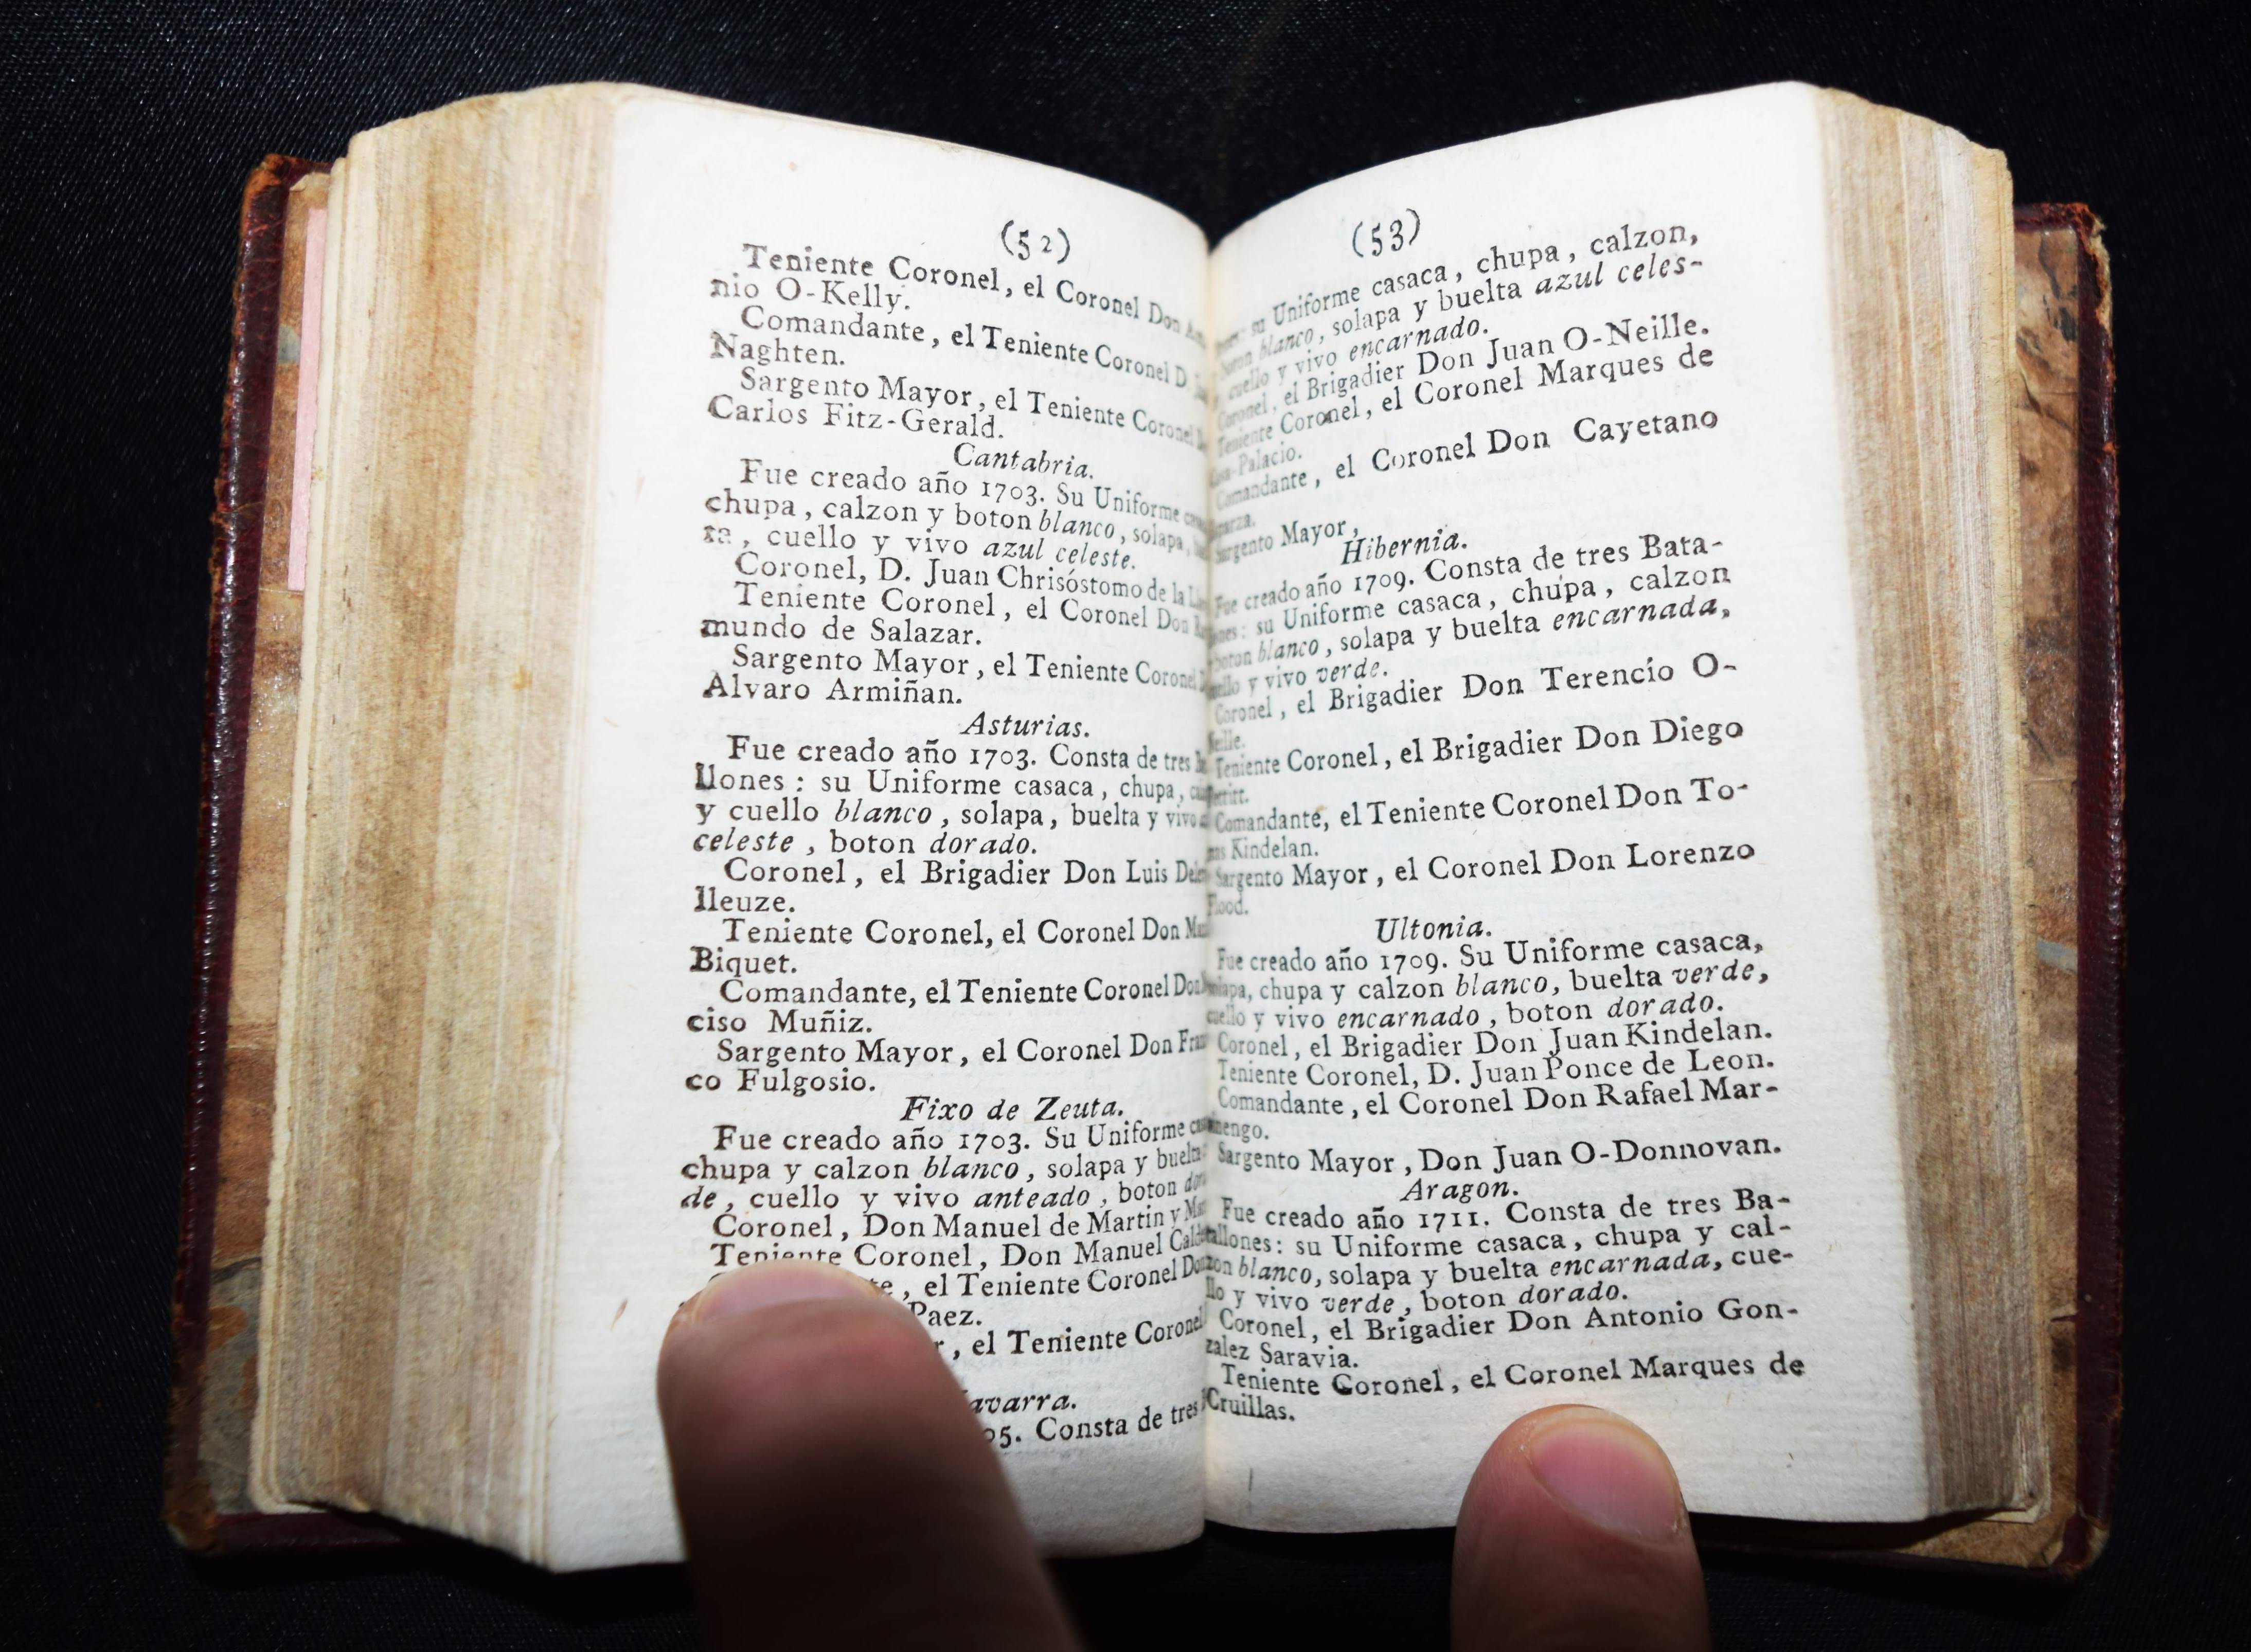 (52)
Teniente Coronel, el Coronel Don
nio O-Kelly.
Comandante, el Teniente Coronel D.
Naghten.
Sargento Mayor, el Teniente Coronel
Carlos Fitz-Gerald.
Cantabria.
Fue creado año 1703. Su Uniforme
chupa, calzon y boton blanco, solapa,
ta, cuello y vivo azul celeste.
Coronel, D. Juan Chrisóstomo de la
Teniente Coronel, el Coronel Don
mundo de Salazar.
Sargento Mayor, el Teniente Coronel
Alvaro Armiñan.
Asturias.
Fue creado año 1703. Consta de tres
llones: su Uniforme casaca, chupa,
y cuello blanco, solapa, buelta y vivo
celeste, boton dorado.
Coronel, el Brigadier Don Luis
lleuze.
Teniente Coronel, el Coronel Don
Biquet.
Comandante, el Teniente Coronel Don
ciso Muñiz.
Sargento Mayor, el Coronel Don
co Fulgosio.
Fixo de Zeuta.
Fue creado año 1703. Su Uniforme
chupa y calzon blanco, solapa y buelta
de, cuello y vivo anteado, boton
Coronel, Don Manuel de Martin y
Teniente Coronel, Don Manuel
te, el Teniente Coronel
Paez.
r, el Teniente Coronel
avarra.
05. Consta de tres
(53)
su Uniforme casaca, chupa, calzon,
boton blanco, solapa y buelta azul celes-
cuello y vivo encarnado.
Coronel, el Brigadier Don Juan O-Neille.
Teniente Coronel, el Coronel Marques de
Casa-Palacio.
Comandante, el Coronel Don Cayetano
Sargento Mayor,
Hibernia.
Fue creado año 1709. Consta de tres Bata-
llones: su Uniforme casaca, chupa, calzon
y boton blanco, solapa y buelta encarnada,
cuello y vivo verde.
Coronel, el Brigadier Don Terencio O-
Neille.
Teniente Coronel, el Brigadier Don Diego
Comandante, el Teniente Coronel Don To-
mas Kindelan.
Sargento Mayor, el Coronel Don Lorenzo
Flood.
Ultonia.
Fue creado año 1709. Su Uniforme casaca,
solapa, chupa y calzon blanco, buelta verde,
cuello y vivo encarnado, boton dorado.
Coronel, el Brigadier Don Juan Kindelan.
Teniente Coronel, D. Juan Ponce de Leon.
Comandante, el Coronel Don Rafael Mar-
mengo.
Sargento Mayor, Don Juan O-Donnovan.
Aragon.
Fue creado año 1711. Consta de tres Ba-
tallones: su Uniforme casaca, chupa y cal-
zon blanco, solapa y buelta encarnada, cue-
llo y vivo verde, boton dorado.
Coronel, el Brigadier Don Antonio Gon-
zalez Saravia.
Teniente Coronel, el Coronel Marques de
Cruillas.